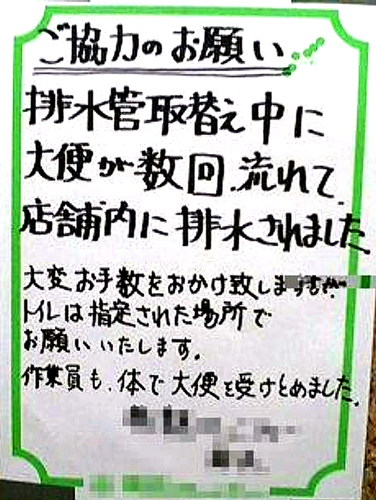 ご協力のお願い
排水管取替え中に
大便が数回、流れて、
店舗内に排水されました。
大変お手数をおかけ致しますが
トイレは指定された場所で
お願いいたします。
作業員も、体で大便を受けとめました。